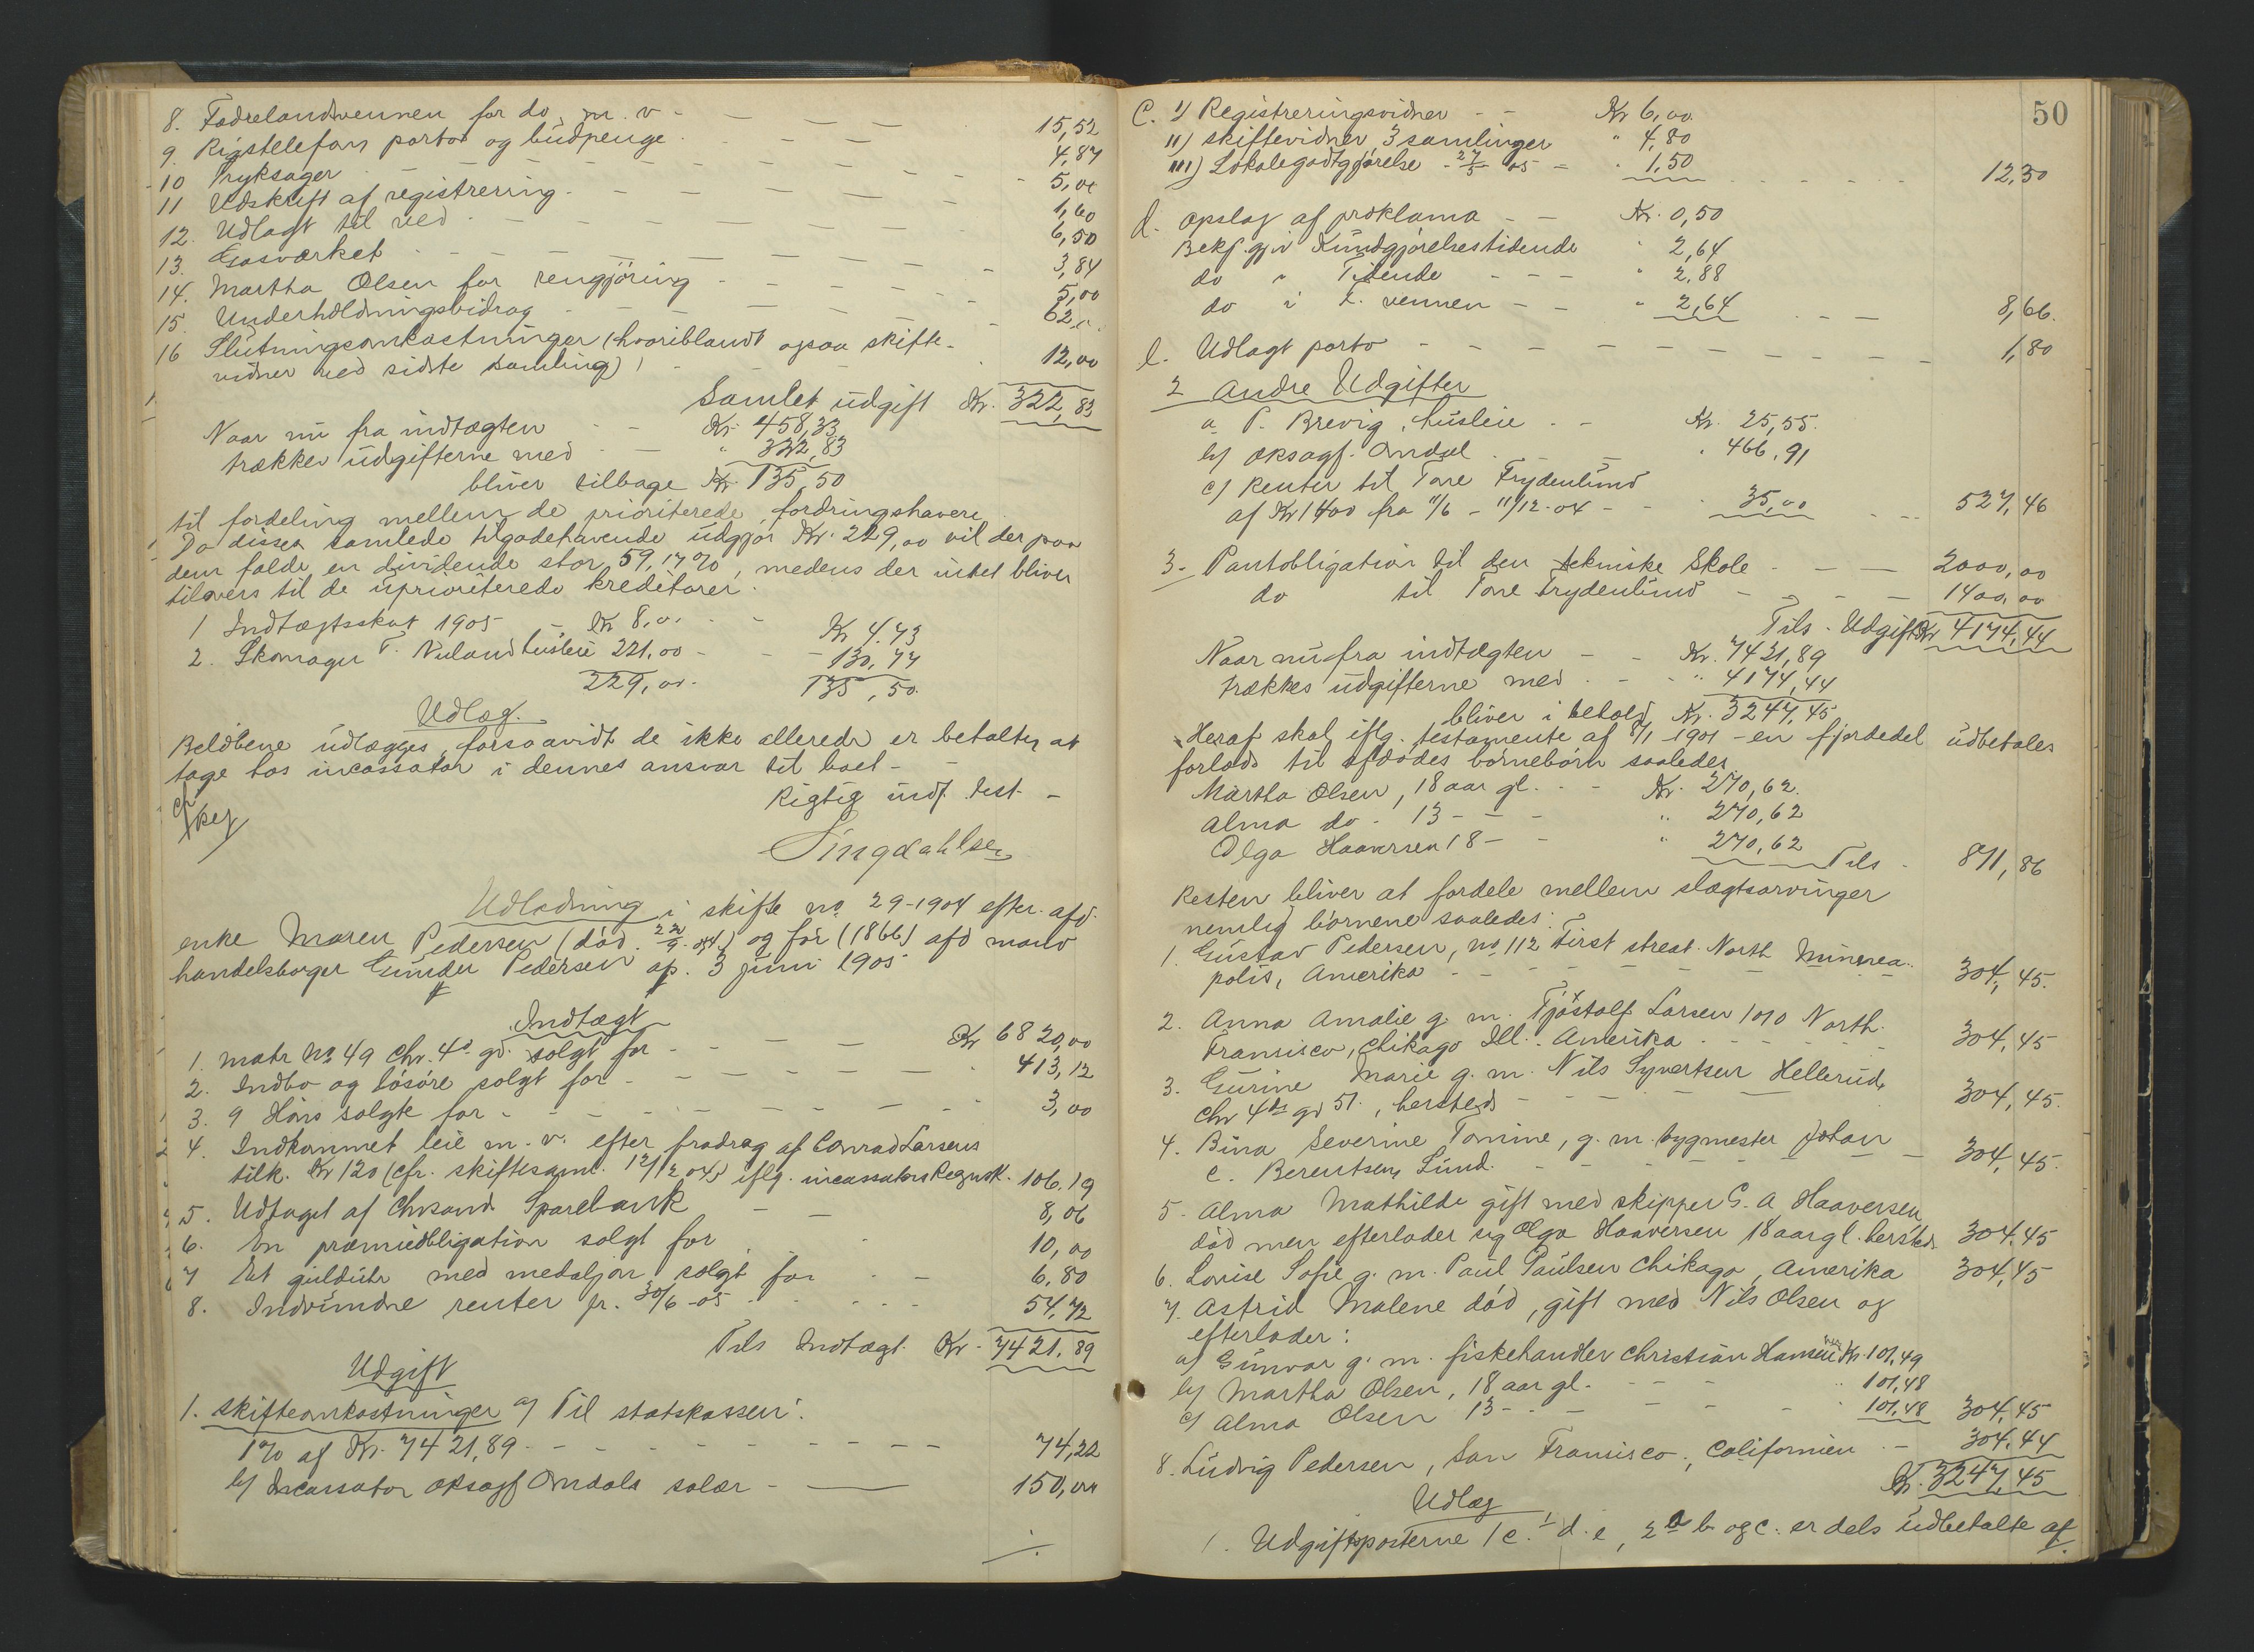 8. Fædrelandsvennen for do. m. v - 15,52
9. Rigstelefon porto og budpenge 4,87
10 Tryksager 5,00
11 Udskrift af registrering 1,60
12. Udlagt til ved 6,50
13. Gasværket 3,84
14. Martha Olsen for rengjöring 5,00
15. Underholdningsbidrag 62,
16 Slutningsomkostninger (hvoriblandt ogsaa skifte-
vidner ved sidste samling) 12,00
Samlet udgift Kr. 322,83
Naar nu fra indtægten Kr. 458,33
trækkes udgifterne med " 322,83
bliver tilbage Kr. 135,50
til fordeling mellem de prioriterede fordringshavere
Da disses samlede tilgodehavende udgjør Kr. 229,00 vil der paa
dem falde en dividende stor 59,17%, medens der intet bliver
tilovers til de uprioriterede kreditorer.
1 Indtægtsskat 1905 - Kr 8,0. - Kr 4.73
2. Skomager T. Nuland husleie 221.00 - 130,77
229,00. 135,50.
Udlæg.
Beløbene udlægges, forsaavidt de ikke allerede er betalte, at
tage hos incassator i dennes ansvar til boet -
Rigtig indf. test. -
Singdahlsen
Udlodning i skifte no 29-1904 efter afd.
enke Maren Pedersen (död. 22/9-04) og før (1866) afd mand
handelsborger Gunder Pedersen op. 3 juni 1905
Indtægt
1. matr No 49 Chr. 4de gd. solgt for Kr 6820,00
2. Indbo og lösöre solgt for 413,12
3. 9 Höns solgte for 3,00
4. Indkommet leie m. v. efter fradrag af Conrad Larsens
tilk. Kr 120 (cfr. skiftesaml. 12/12 04) iflg. incassators Regnsk. 106.19
5. Udtaget af Chrsand Sparebank 8,06
6. En præmieobligation solgt for 10,00
7 Et guldur med medaljon solgt for 6,80
8. Indvundne renter pr. 30/6-05 54,72
Tils Indtægt Kr. 7421.89
Udgift
1. skifteomkostninger a) Til statskassen:
1% af Kr. 7421,89 74,22
b) Incassator oksagf Omdals salær 150,00
50
C. I) Registreringsvidner Kr 6,00
II) skiftevidner 3 samlinger " 4,80
III) Lokalegodtgjörelse 27/5 05 - 1,50 12,30
d. opslag af proklama Kr. 0,50
Bekj.gj. i Kundgjörelsestidende " 2,64
do " Tidende " 2,88
do i F. vennen " 2,64 8,66.
e. Udlagt porto 1,80
2 andre Udgifter
a P. Brevig, husleie Kr. 25,55.
b) oksagf. Omdal " 466,91
c) Renter til Tore Frydenlund
af Kr 1400 fra 11/6 - 11/12-04 - 35,00 527,46
3. Pantobligation til den tekniske Skole 2000,00
do til Tore Frydenlund 1400,00
Tils. Udgift Kr 4174,44
Naar nu fra indtægten Kr. 7421,89
trækkes udgifterne med " 4174,44
bliver i behold Kr. 3247,45
Heraf skal iflg. testamente af 8/1 1901 - en fjerdedel udbetales
forlods til afdödes börnebörn saaledes
Martha Olsen, 18 aar gl. Kr. 270,62.
Alma do - 13 - " 270,62
Olga Haaversen 18 - " 270,62 Tils 811,86
Resten bliver at fordele mellem slægtsarvinger
nemlig börnene saaledes:
1. Gustav Pedersen, no 112 First street North Minnea-
polis, Amerika 304,45.
2. Anna Amalie g. m. Tjöstolf Larsen 1010 North
Fransisco, Chikago Ill. Amerika 304,45
3. Gurine Marie g. m. Nils Syvertsen Hellerud,
Chr 4de gd 51, hersteds 304,45.
4. Bina Severine Tomine, g. m. bygmester Johan
C. Berentsen, Lund. 304,45.
5. Alma Mathilde gift med skipper G. A Haaversen
död men efterlader sig Olga Haaversen 18 aar gl. hersteds 304,45
6. Lovise Sofie g. m. Paul Paulsen Chikago, Amerika 304,45
7. Astrid Malene död, gift med Nils Olsen og
efterlader:
a) Gunvor g. m. fiskehandler Christian Hansen her Kr. 101,49
b) Martha Olsen, 18 aar gl. 101,48
c) Alma Olsen 13 - 101,48 304,45
8. Ludvig Pedersen, San Fransisco, Californien 304,44
Kr. 3247,45
Udlæg
1. Udgiftsposterne 1 c. d. e, 2 a b og c. er dels udbetalte af